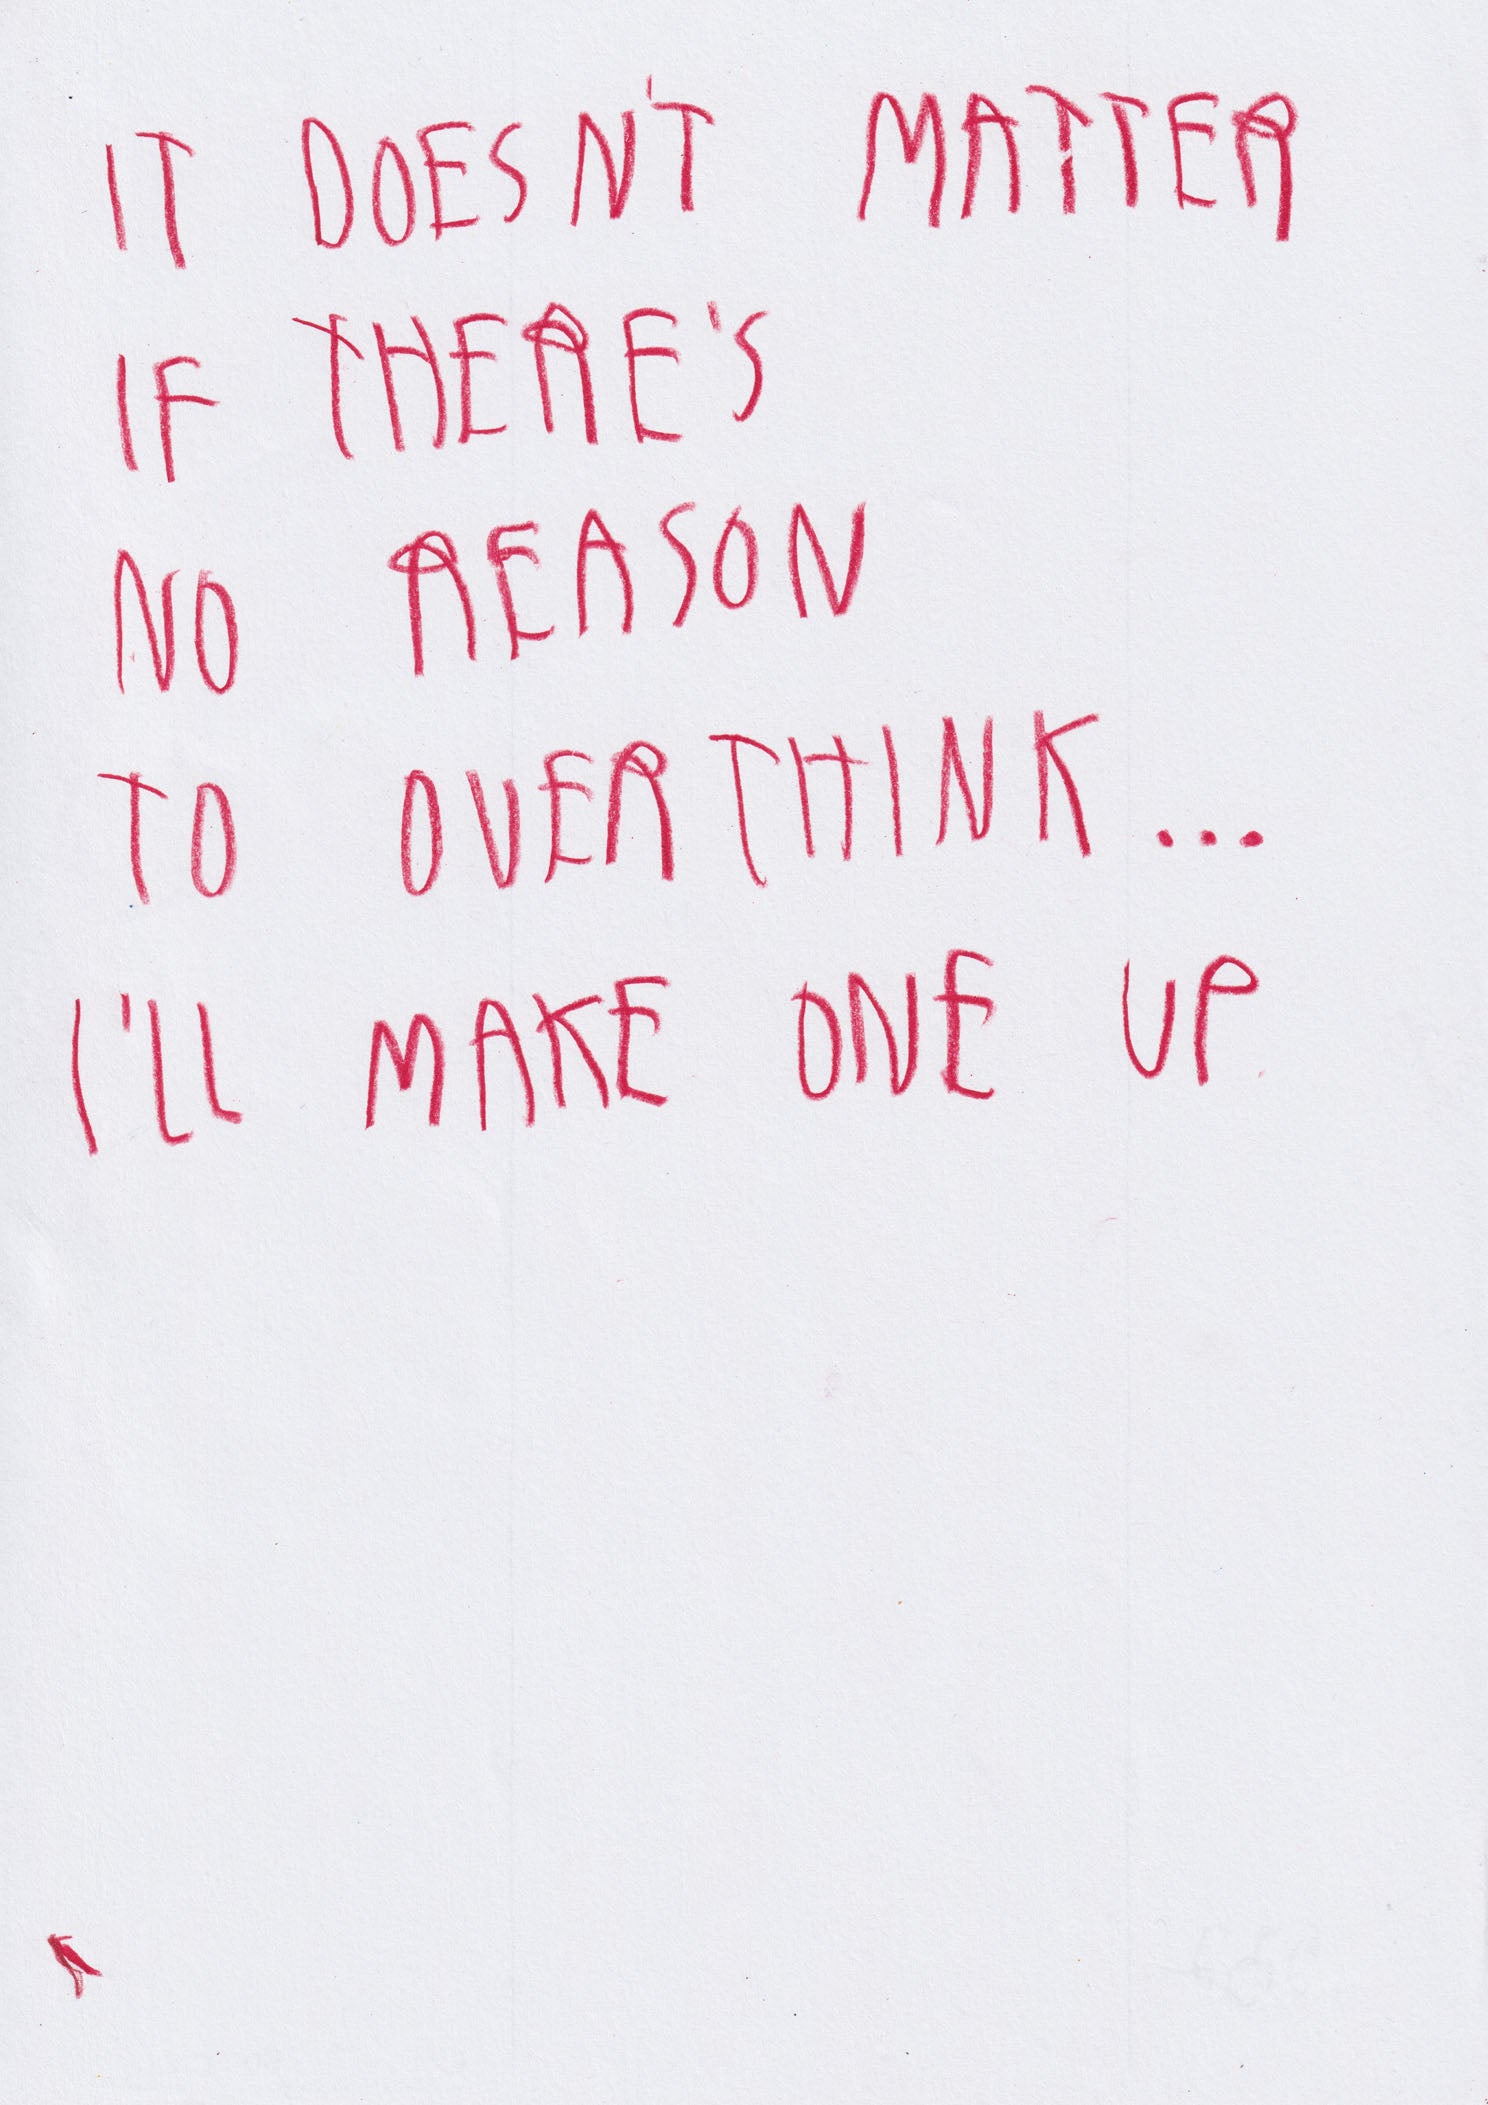 IT DOESN'T MATTER
IF THERE'S
NO REASON
TO OVERTHINK...
I'LL MAKE ONE UP